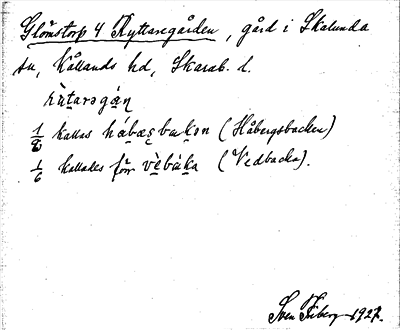 Glömstorp 4 Ryttaregården, gård i Skalunda
sn, Kållands hd, Skarab. l.
rỳtarəgán
1/8 kallas hábæsbakon (Håbergsbacken)
1/6 kallades förr vèbàka (Vedbacka).
Sven Fåberg 1927.